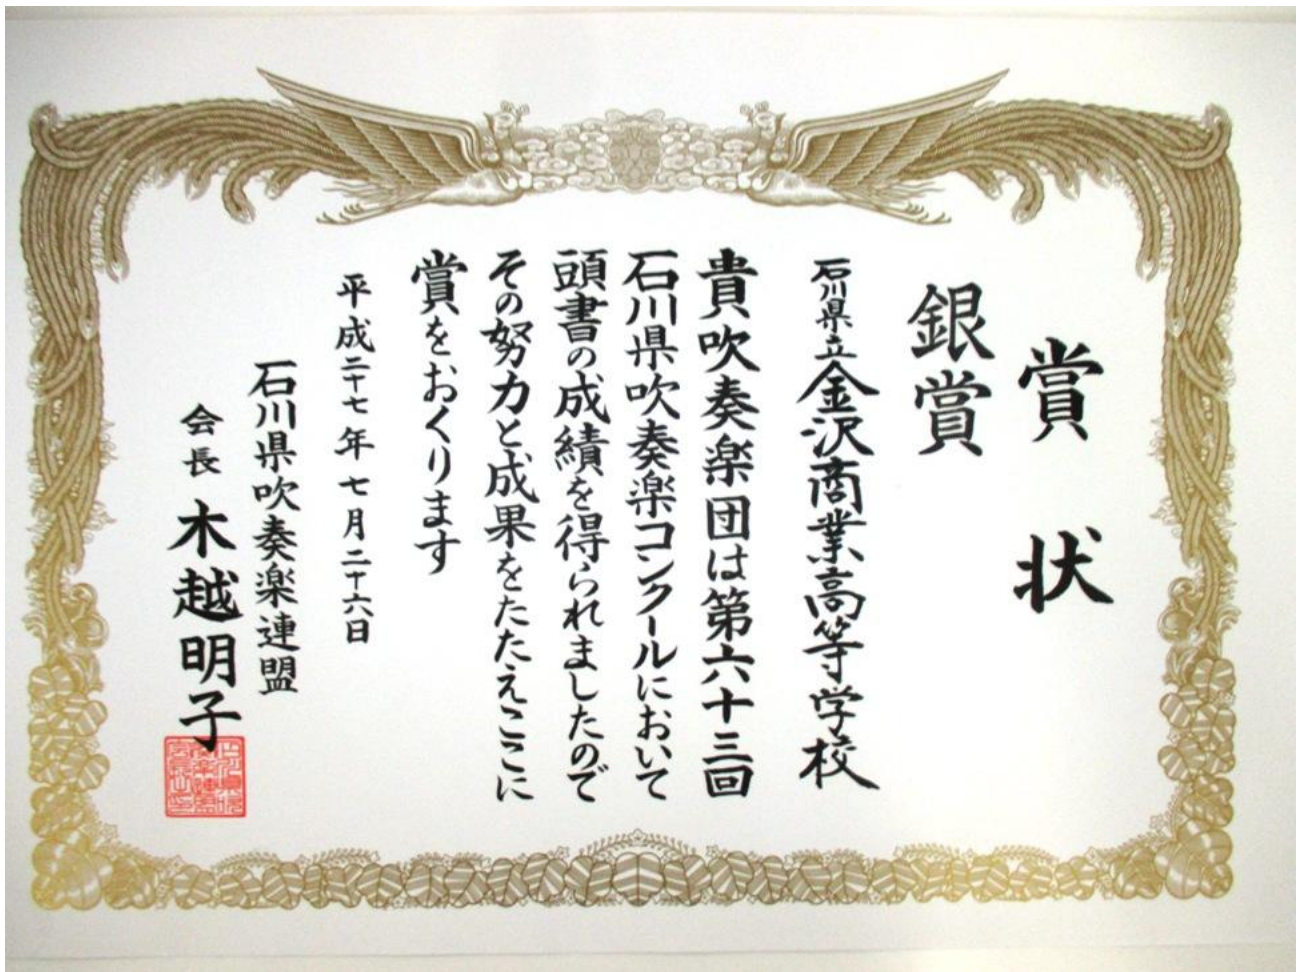 賞状
銀賞
石川県立金沢商業高等学校
貴吹奏楽団は第六十三回
石川県吹奏楽コンクールにおいて
頭書の成績を得られましたので
その努力と成果をたたえここに
賞をおくります
平成二十七年七月二十六日
石川県吹奏楽連盟
会長 木越明子